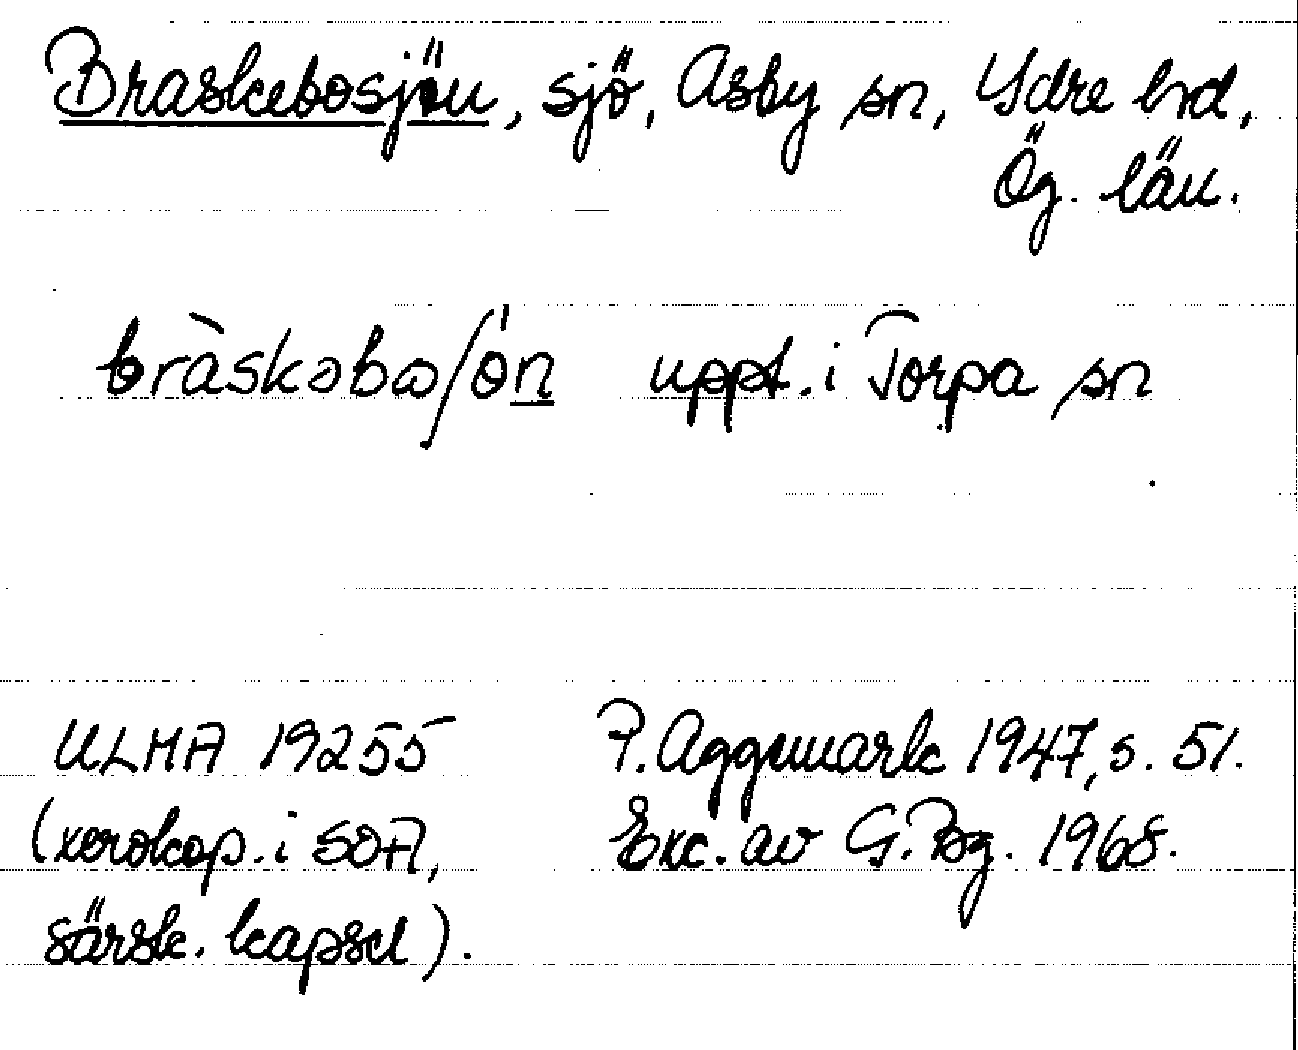 Braskebosjön, sjö, Asby sn, Ydre hd,
Ög. län.
bràskəbω/ón uppt. i Torpa sn
ULMA 19255 P. Aggemark 1947, s. 51.
(xerokop. i SOA, Exc. av G. Bg. 1968.
särsk. kapsel).